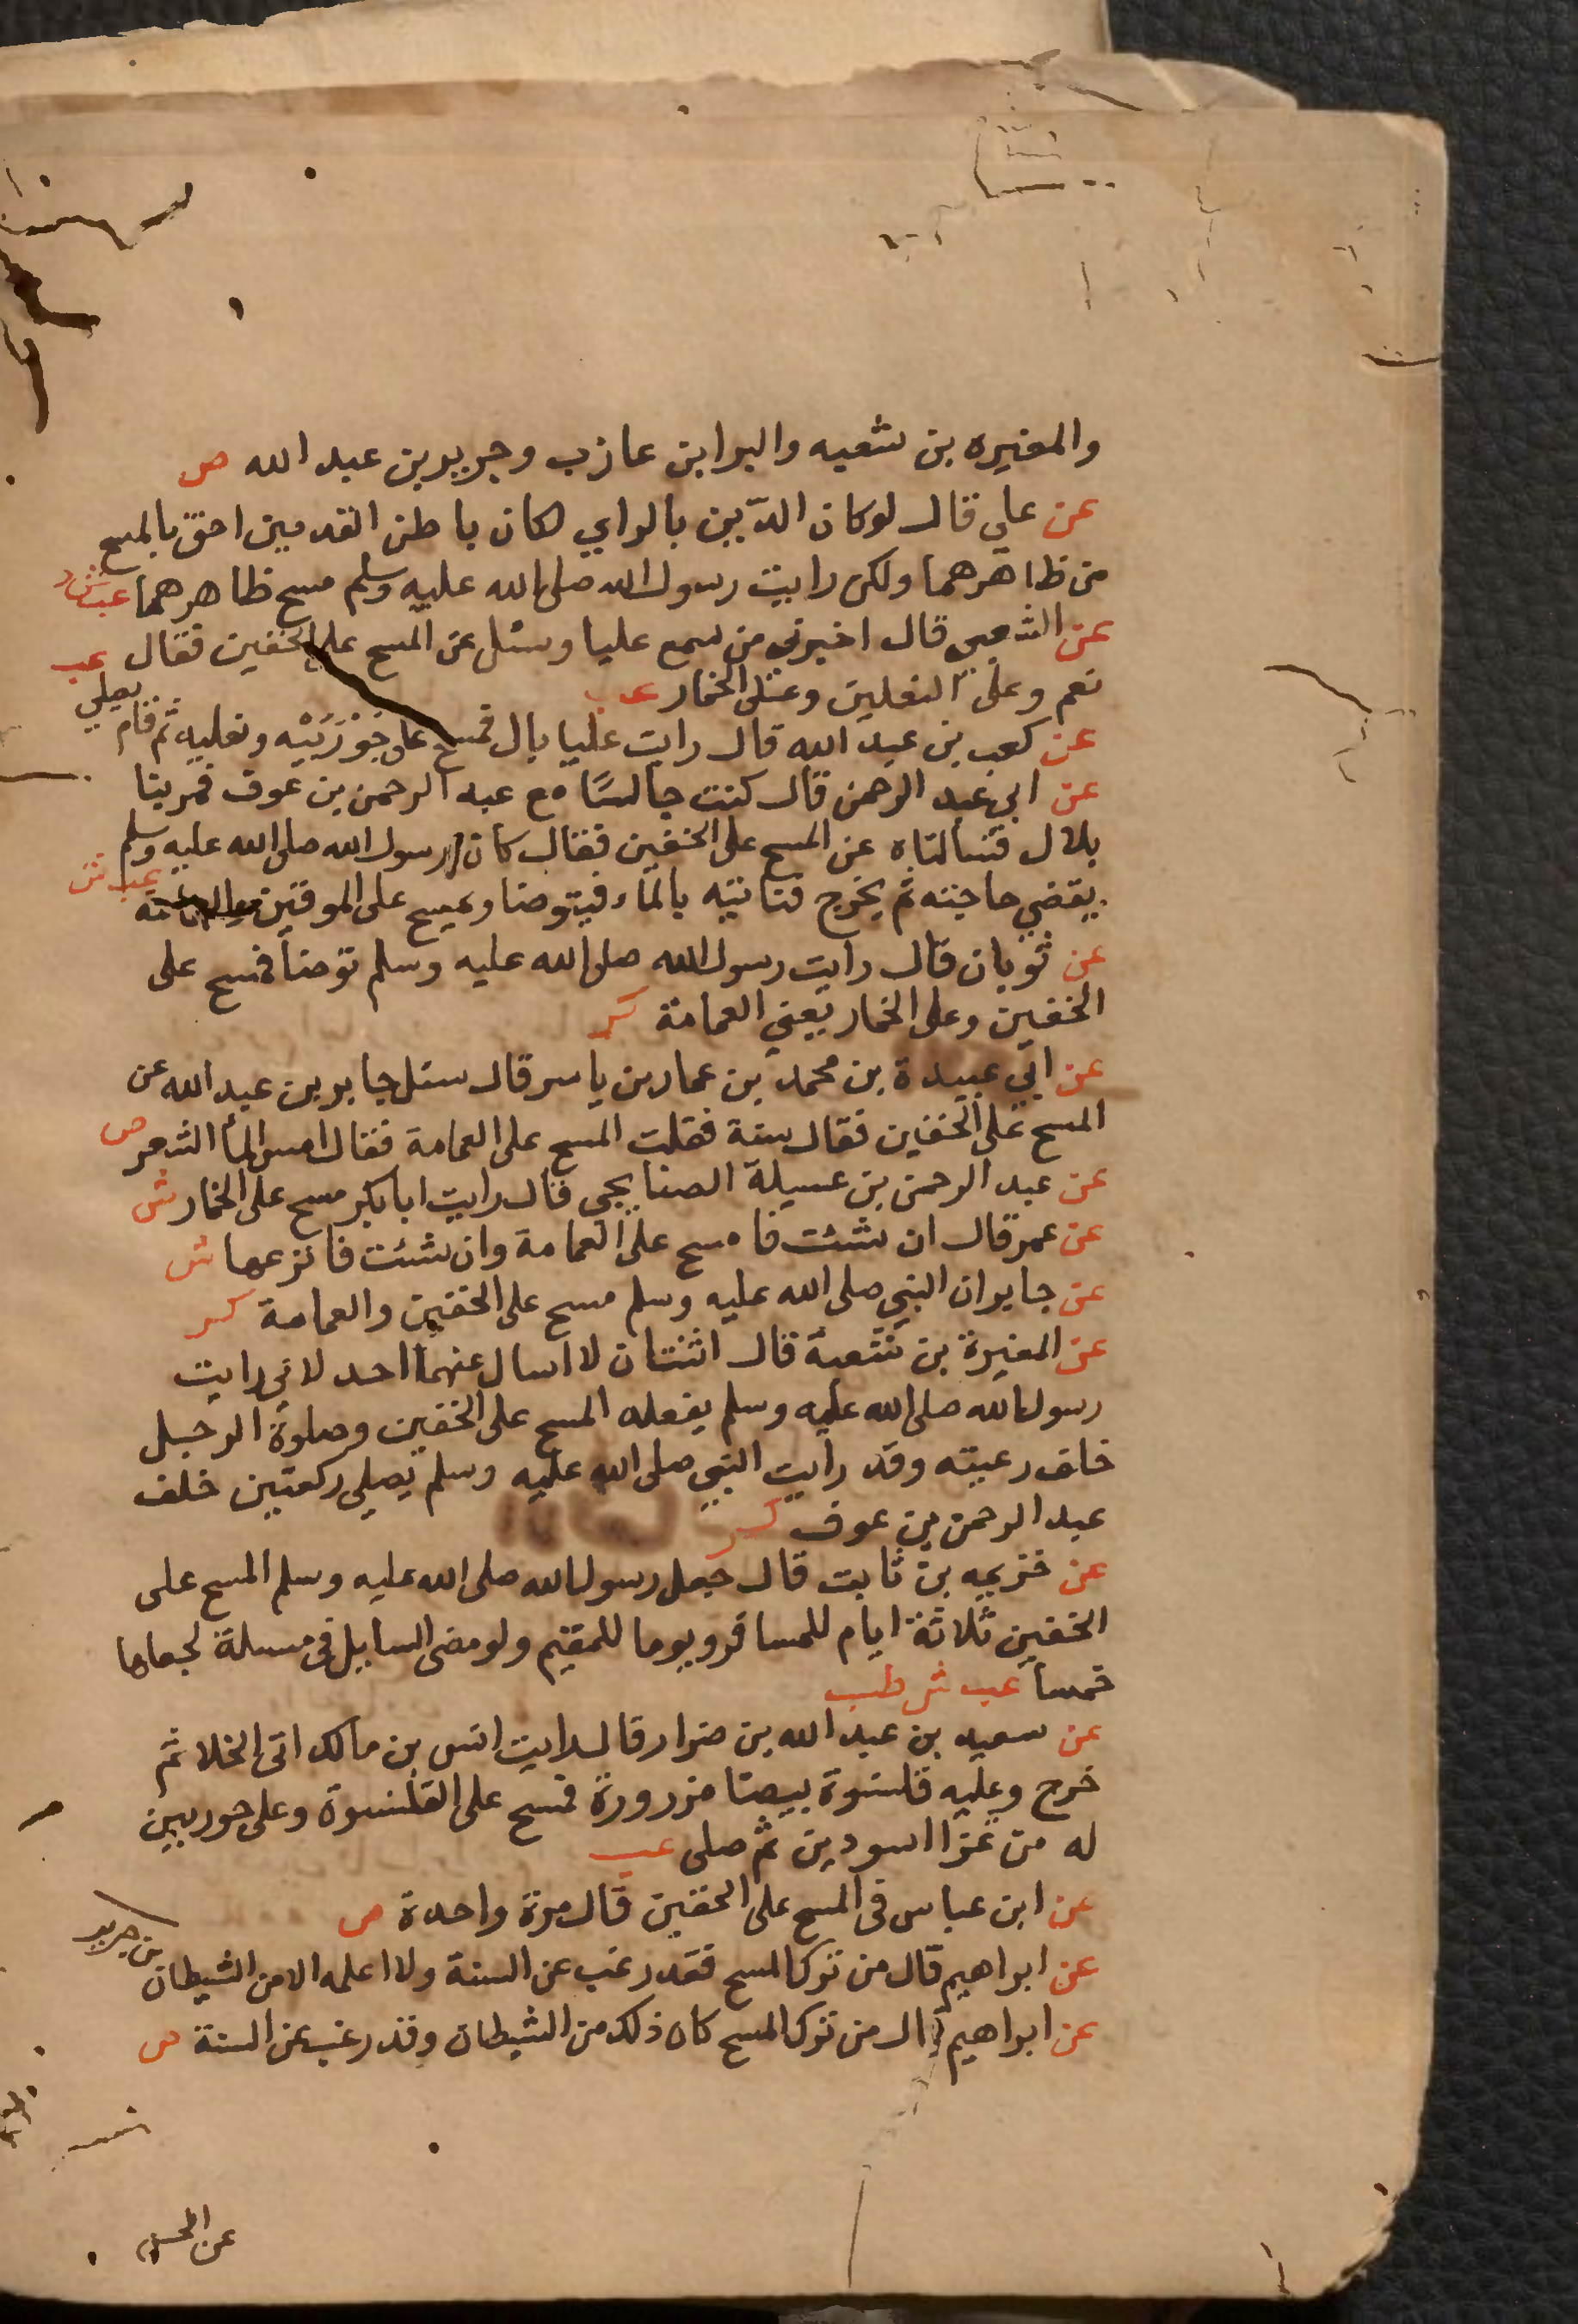 والمغيره بن شعبه والبرا بن عازب وجرير بن عبد الله ص
عن علي قال لو كان الدّين بالراي لكان باطن القدمين احق بالمسح
من ظاهرهما ولكن رايت رسول الله صلى الله عليه وسلم مسح ظاهرهما عب ش د
عن الشعبي قال اخبرني من سمع عليا وسئل عن المسح على الخفين فقال عب
نعم وعلى النعلين وعلى الخمار عب
عن كعب بن عبد الله قال رايت عليا بال فمسح على جَوْرَبَيْه ونعليه ثم قام يصلي
عن ابي عبد الرحمن قال كنت جالسًا مع عبد الرحمن بن عوف فمر بنا
بلال فسالناه عن المسح على الخفين فقال كان رسول الله صلى الله عليه وسلم
يقضي حاجته ثم يخرج فناتيه بالماء فيتوضا ويمسح على الموقين والعمامة عب ش
عن ثوبان قال رايت رسول الله صلى الله عليه وسلم توضأ فمسح على
الخفين وعلى الخمار يعني العمامة كر
عن ابي عبيدة بن محمد بن عمار بن ياسر قال سئل جابر بن عبد الله عن
المسح على الخفين فقال سنة فقلت المسح على العمامة فقال امس الماء الشعر ص
عن عبد الرحمن بن عسيلة الصنابحي قال رايت ابا بكر مسح على الخمار ش
عن عمر قال ان شئت فامسح على العمامة وان شئت فانزعها ش
عن جابر ان النبي صلى الله عليه وسلم مسح على الخفين والعمامة كر
عن المغيرة بن شعبة قال اثنتان لا اسال عنهما احد لاني رايت
رسول الله صلى الله عليه وسلم يفعله المسح على الخفين وصلوة الرجل
خلف رعيته وقد رايت النبي صلى الله عليه وسلم يصلي ركعتين خلف
عبد الرحمن بن عوف كر
عن خزيمه بن ثابت قال جعل رسول الله صلى الله عليه وسلم المسح على
الخفين ثلاثة ايام للمسافر ويوما للمقيم ولو مضى السايل في مسلة لجعلها
خمسا عب ش طب
عن سعيد بن عبد الله بن ضرار قال رايت انس بن مالك اتى الخلا ثم
خرج وعليه قلنسوة بيضا مزرورة فمسح على القلنسوة وعلى جوربين
له من عزا اسودين ثم صلى عب
عن ابن عباس في المسح على الخفين قال مرة واحدة ص
عن ابراهيم قال من ترك المسح فقد رغب عن السنة ولا اعلمه الا من الشيطان بن جرير
عن ابراهيم قال من ترك المسح كان ذلك من الشيطان وقد رغب عن السنة ص
عن الحسن